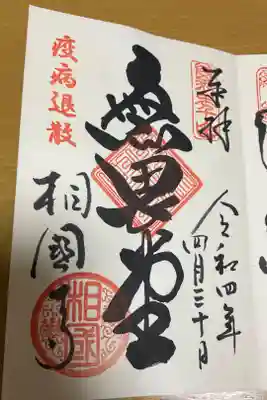 奉拝
令和四年
四月三十日
無畏堂
疫病退散
相國寺